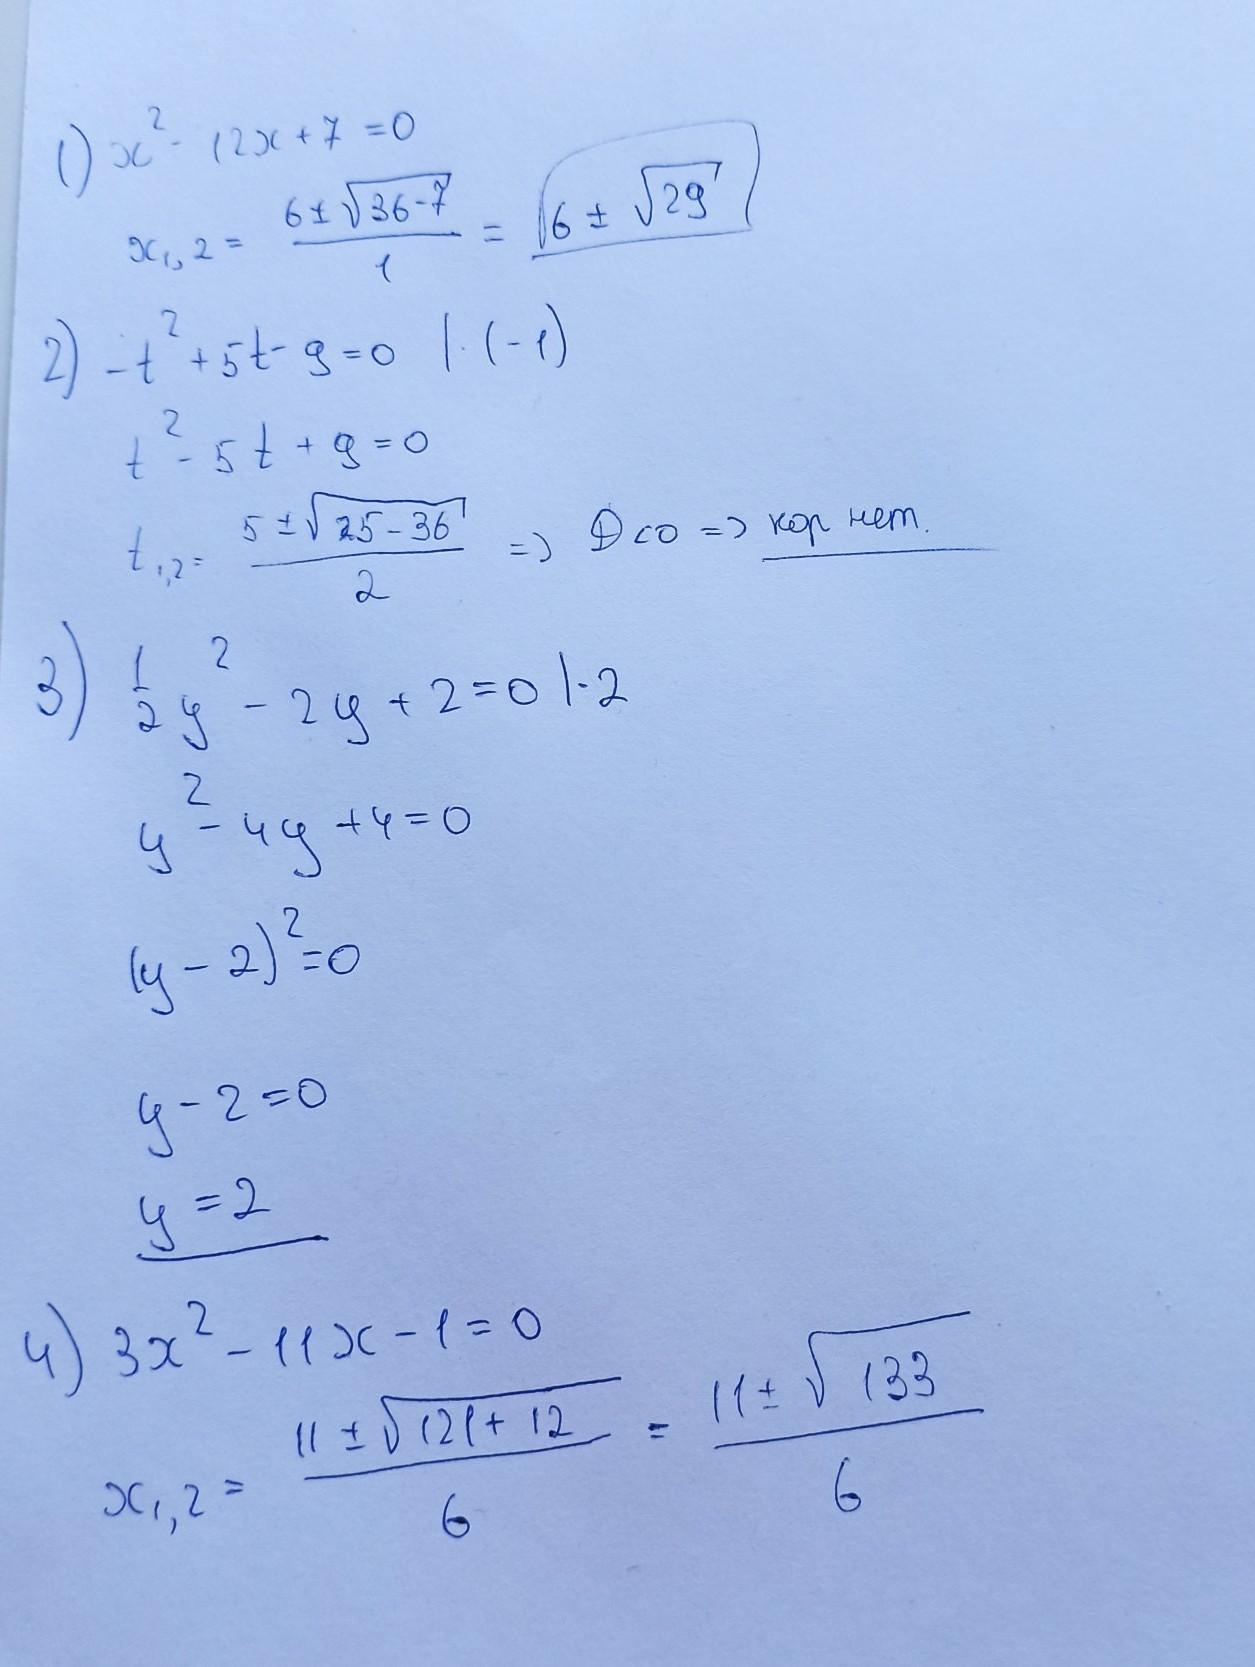 1) x² - 12x + 7 = 0
x₁,₂ = (6 ± √(36-7))/1 = 6 ± √29
2) -t² + 5t - 9 = 0 | · (-1)
t² - 5t + 9 = 0
t₁,₂ = (5 ± √(25-36))/2 => D<0 => кор нет.
3) 1/2 y² - 2y + 2 = 0 | · 2
y² - 4y + 4 = 0
(y - 2)² = 0
y - 2 = 0
y = 2
4) 3x² - 11x - 1 = 0
x₁,₂ = (11 ± √(121 + 12))/6 = (11 ± √133)/6